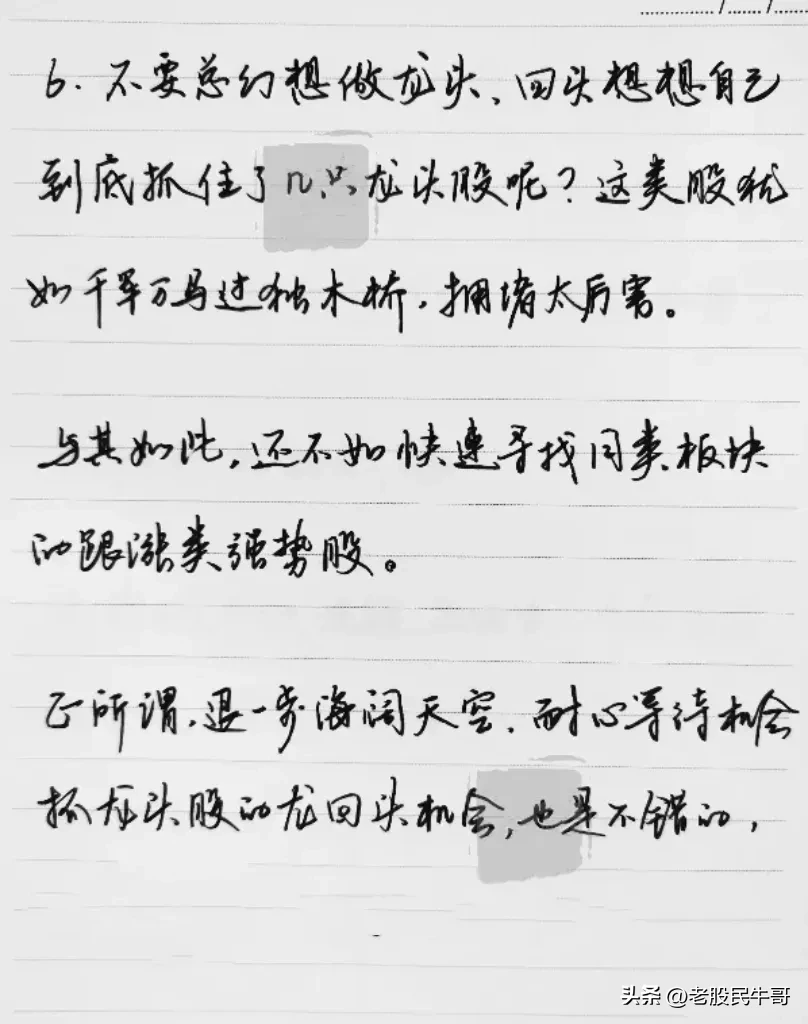 6. 不要总幻想做龙头、回头想想自己
到底抓住了几只龙头股呢？这类股犹
如千军万马过独木桥，拥堵太厉害。
与其如此，还不如快速寻找同类板块
的跟涨类强势股。
正所谓，退一步海阔天空，耐心等待机会
抓龙头股的龙回头机会，也是不错的，
头条 @老股民牛哥